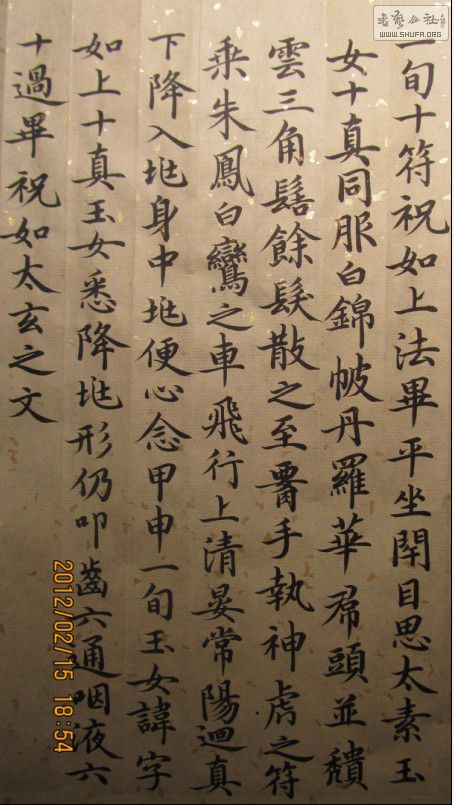 一旬十符祝如上法畢平坐閇目思太素玉
女十真同服白錦帔丹羅華帬頭並頹
雲三角髻餘髮散之至署手執神虎之符
乘朱鳳白鸞之車飛行上清晏常陽迴真
下降入身中便心念甲申一旬玉女諱字
如上十真玉女悉降形仍叩齒六通咽液六
十過畢祝如太玄之文
書藝公社
WWW.SHUFA.ORG
2012/02/15 18:54